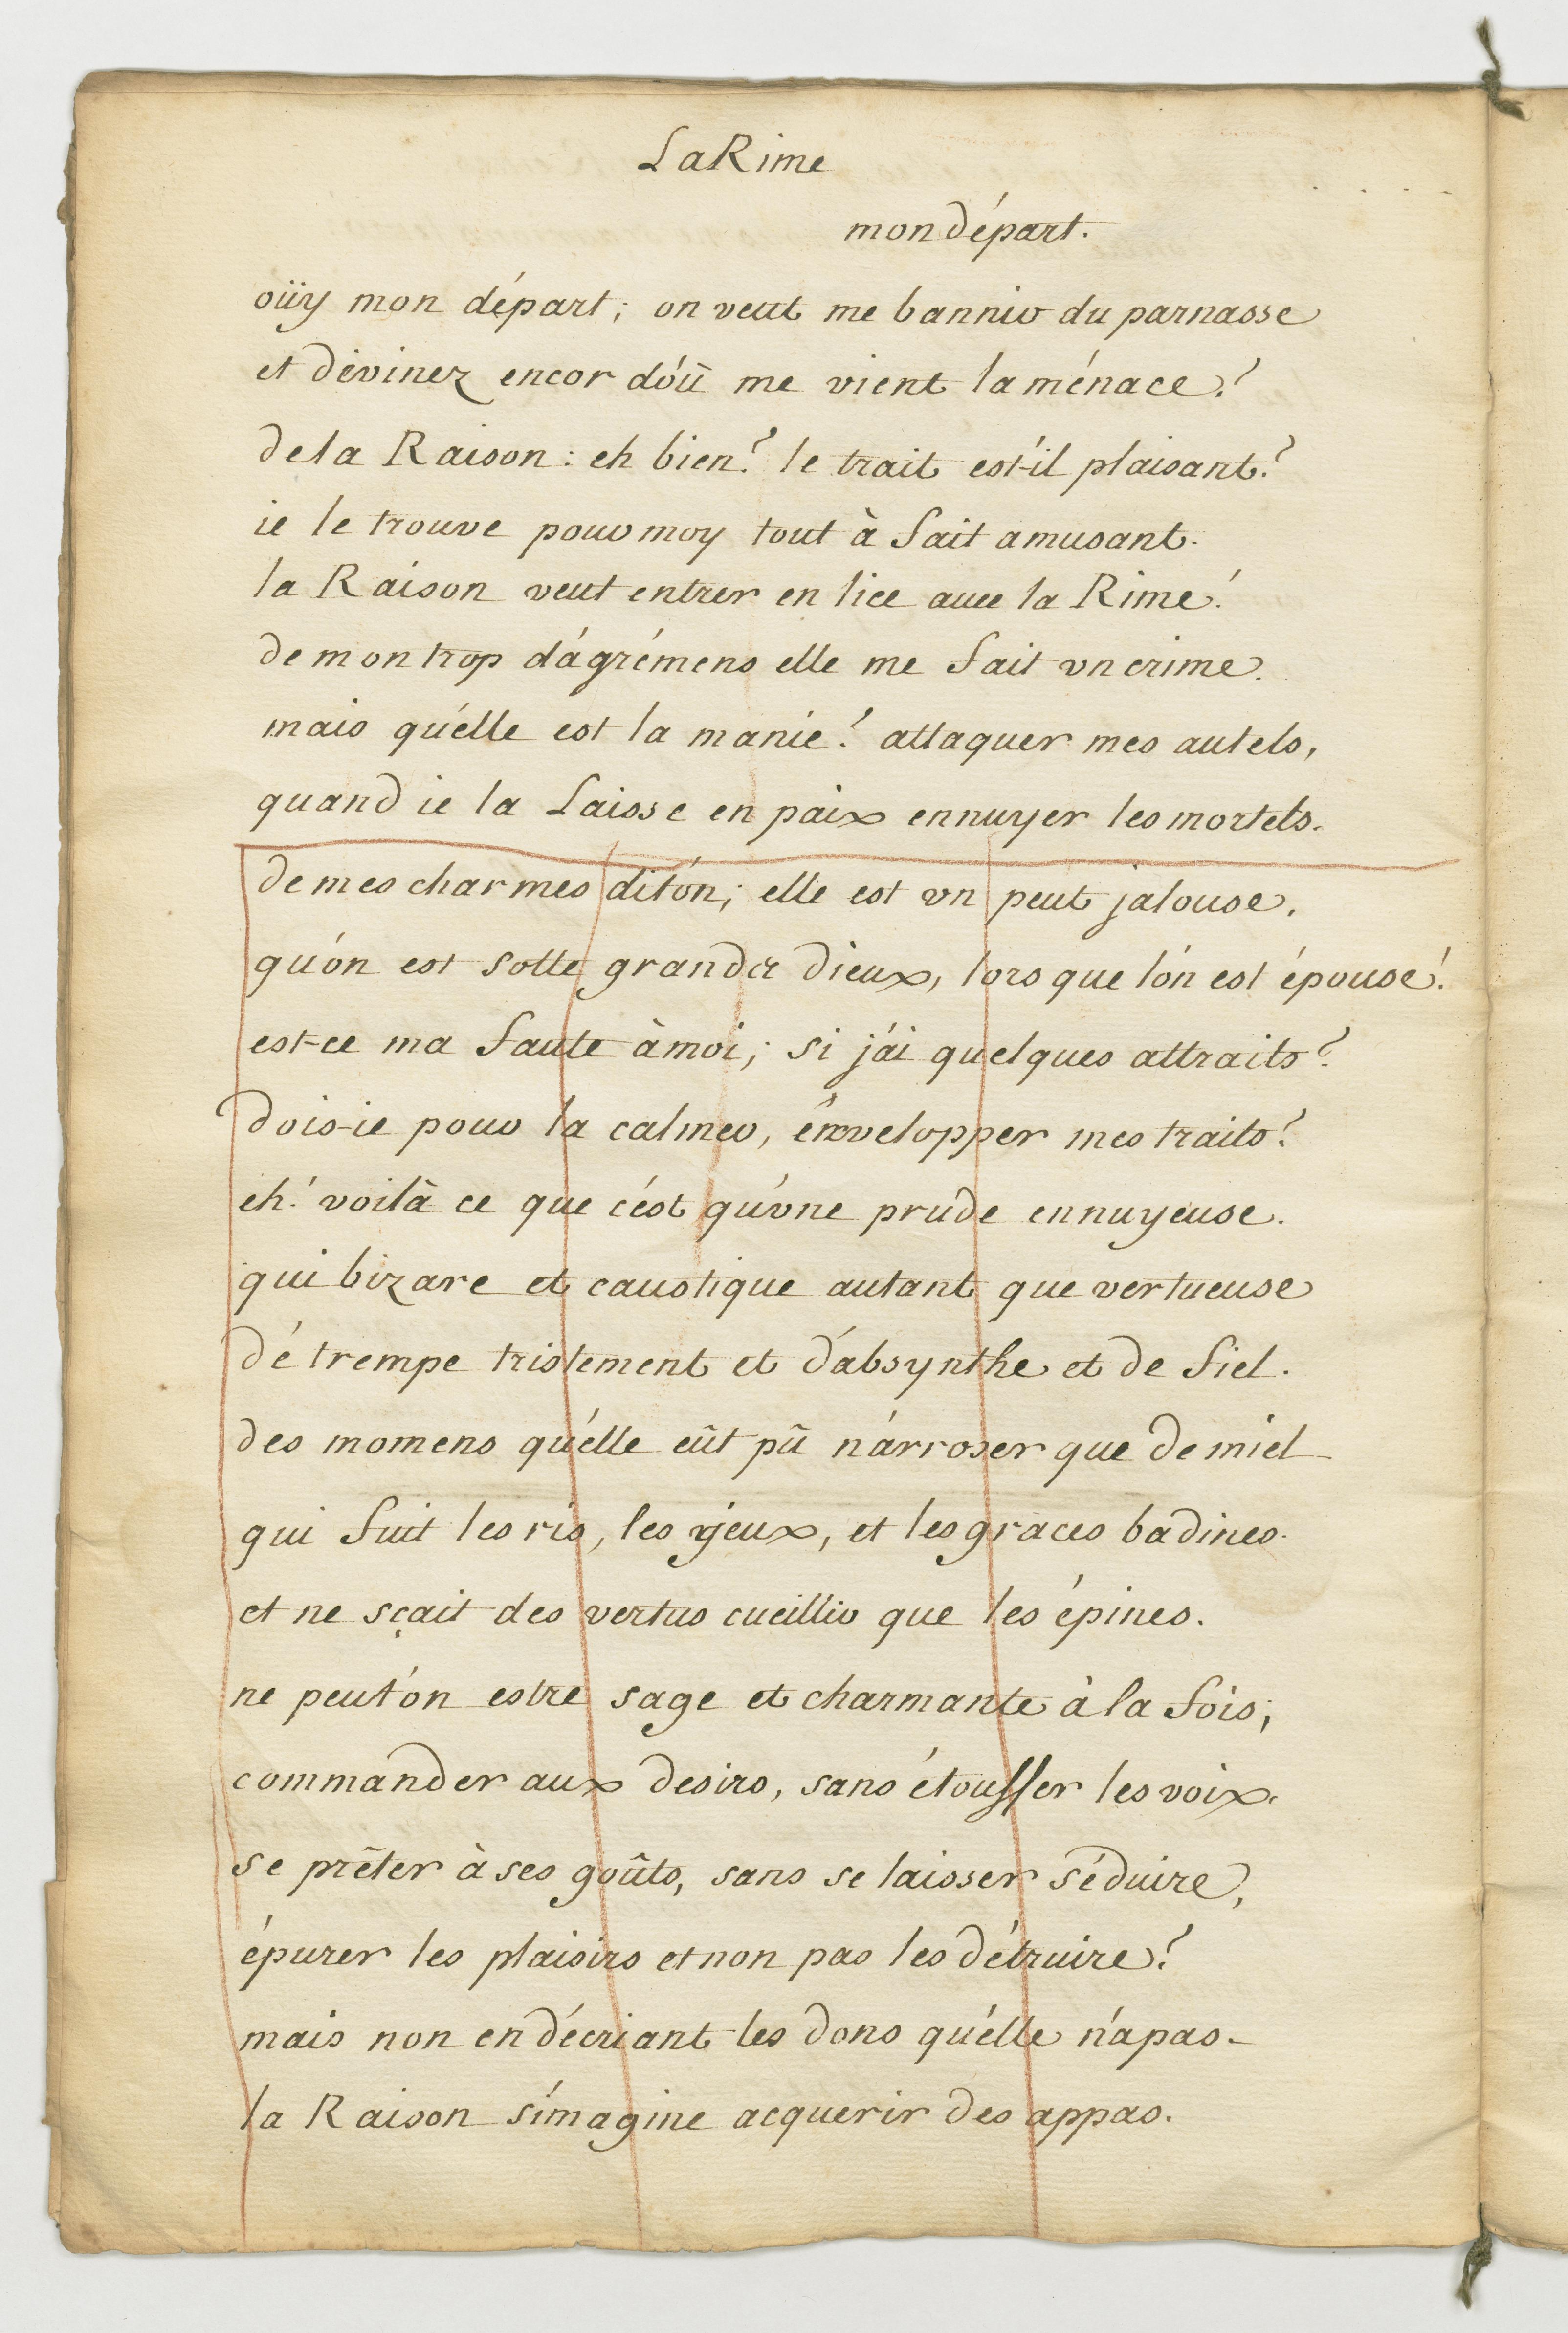 La Rime
mon départ.
oüy mon départ; on veut me bannir du parnasse
et dévinez encor d'óû me vient la ménace?
de la Raison: eh bien? le trait est-il plaisant?
ie le trouve pour moy tout à fait amusant.
la Raison veut entrer en lice avec la Rime!
de mon trop d'ágrémens elle me fait vn crime.
mais qu'élle est la manie? attaquer mes autels,
quand ie la Laisse en paix ennuyer les mortels.
de mes charmes dit'ón; elle est vn peut jalouse.
qu'ón est sotte grands dieux, lors que l'ón est épouse!
est-ce ma faute à moi; si j'ái quelques attraits?
dois-ie pour la calmer, énvelopper mes traits?
eh! voilà ce que c'ést qu'úne prude ennuyeuse.
qui bizare et caustique autant que vertueuse
détrempe tristement et d'ábsynthe et de fiel.
des momens qu'élle eût pû n'árroser que de miel
qui fuit les ris, les jeux, et les graces badines.
et ne sçait des vertus cueillir que les épines.
ne peut'ón estre sage et charmante à la fois;
commander aux desirs, sans étouffer les voix.
se prêter à ses goûts, sans se laisser séduire,
épurer les plaisirs et non pas les détruire?
mais non en décriant les dons qu'élle n'á pas-
la Raison s'ímagine acquerir des appas.